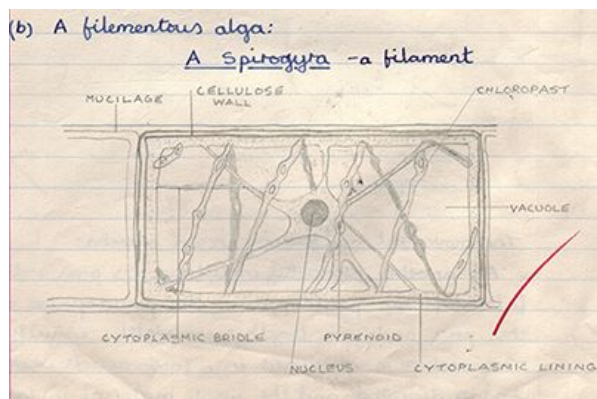 (b) A filementous alga:
A Spirogyra - a filament
MUCILAGE
CELLULOSE
WALL
CHLOROPAST
VACUOLE
CYTOPLASMIC BRIDLE
PYRENOID
NUCLEUS
CYTOPLASMIC LINING